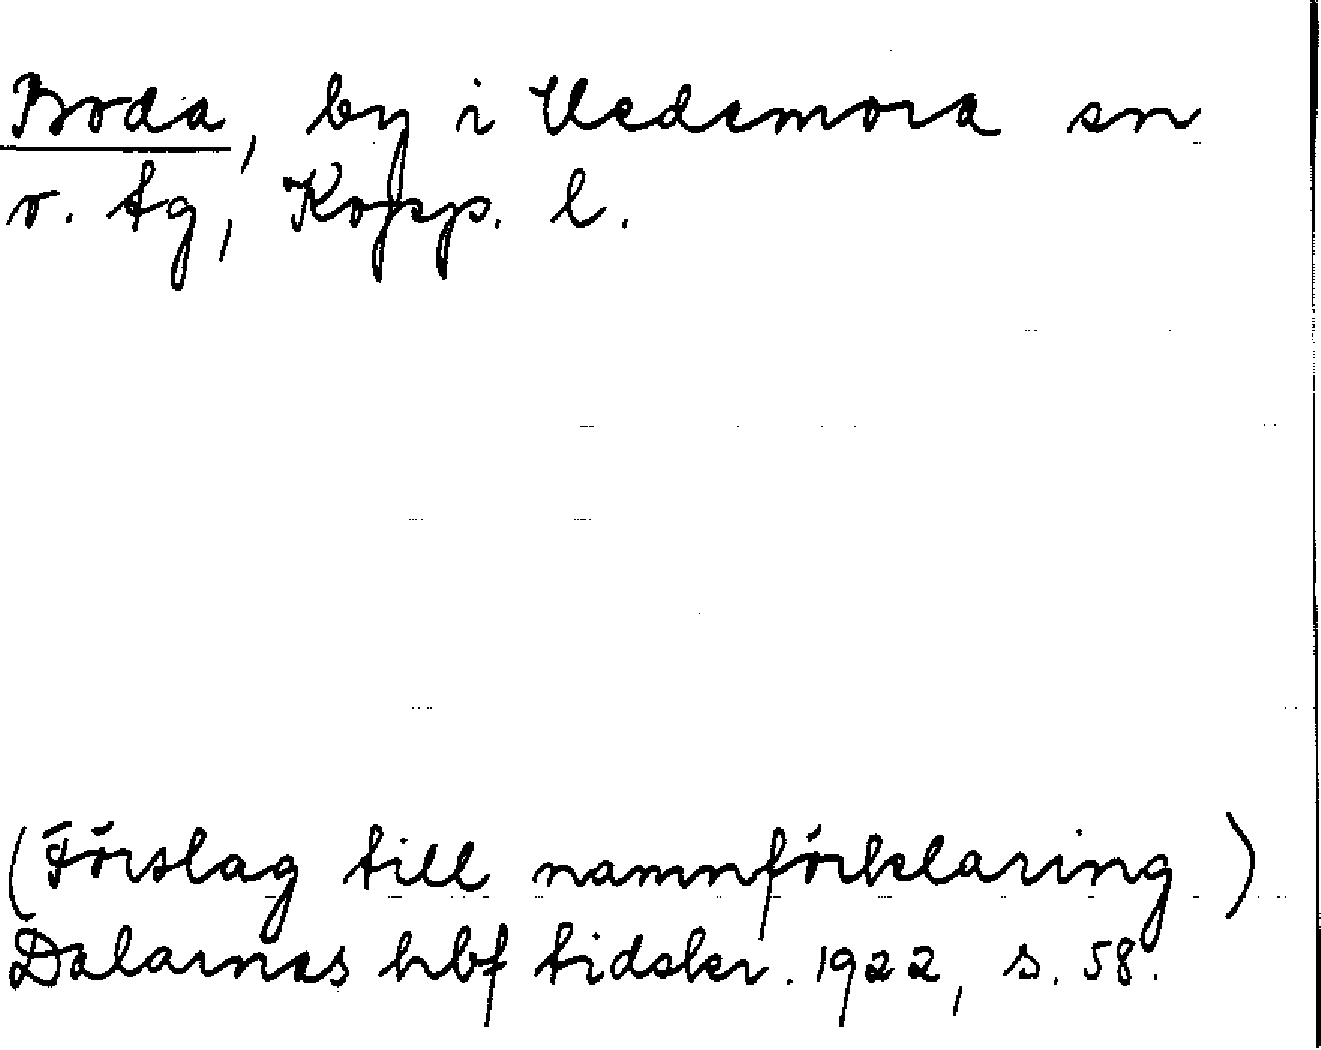 Boda, by i Vedemora sn
o. tg, Kopp. l.
(Förslag till namnförklaring)
Dalarnas hbf tidskr. 1922, s. 58.